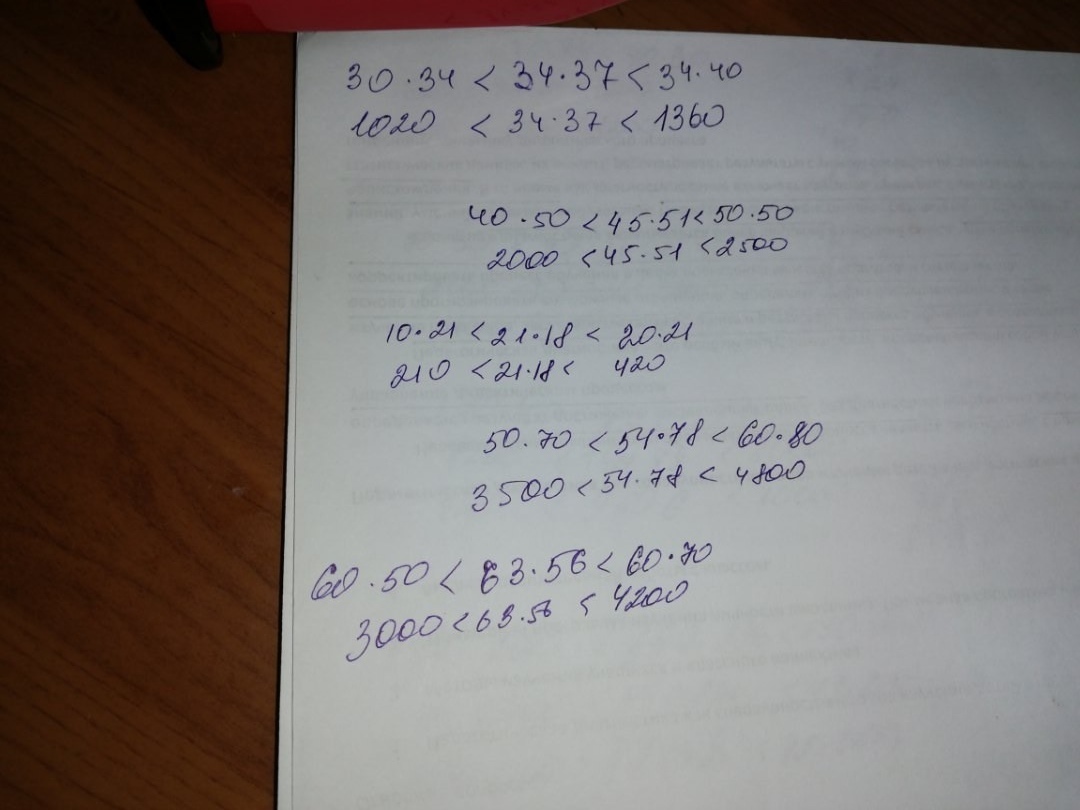 30·34 < 34·37 < 34·40
1020 < 34·37 < 1360
40·50 < 45·51 < 50·50
2000 < 45·51 < 2500
10·21 < 21·18 < 20·21
210 < 21·18 < 420
50·70 < 54·78 < 60·80
3500 < 54·78 < 4800
60·50 < 63·56 < 60·70
3000 < 63·56 < 4200